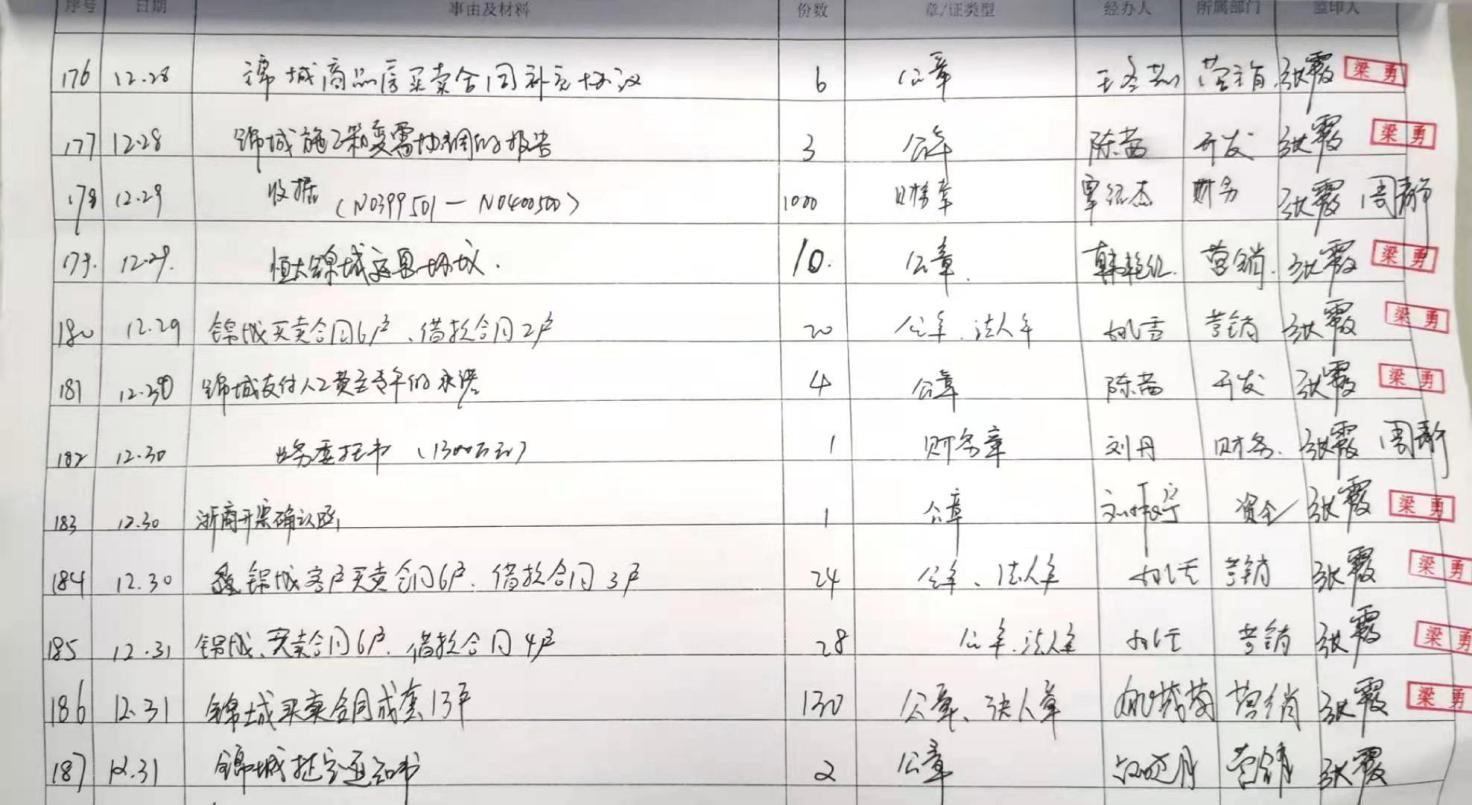 序号 日期 事由及材料 份数 章/证类型 经办人 所属部门 监印人
176 12.28 锦城商品房买卖合同补充协议 6 公章 营销 张霞 梁勇
177 12.28 锦城施工 的报告 3 公章 陈茜 开发 张霞 梁勇
178 12.29 收据 (N0399501—N0400500) 1000 财务章 覃纪杰 财务 张霞 周静
179. 12.29. 恒大锦城 协议. 10. 公章. 韩艳红. 营销. 张霞 梁勇
180 12.29 锦城买卖合同6户、借款合同2户 20 公章、法人章 营销 张霞 梁勇
181 12.30 锦城支付人工费 的承诺 4 公章 陈茜 开发 张霞 梁勇
182 12.30 业务委托书 (1300万元) 1 财务章 刘丹 财务. 张霞 周静
183 12.30 浙商开票确认函 1 公章 资金 张霞 梁勇
184 12.30 锦城客户买卖合同6户、借款合同3户 24 公章、法人章 营销 张霞 梁勇
185 12.31 锦城、买卖合同6户、借款合同4户 28 公章、法人章 营销 张霞 梁勇
186 12.31 锦城买卖合同成套13户 130 公章、法人章 营销 张霞 梁勇
187 12.31 锦城 通知书 2 公章 营销 张霞